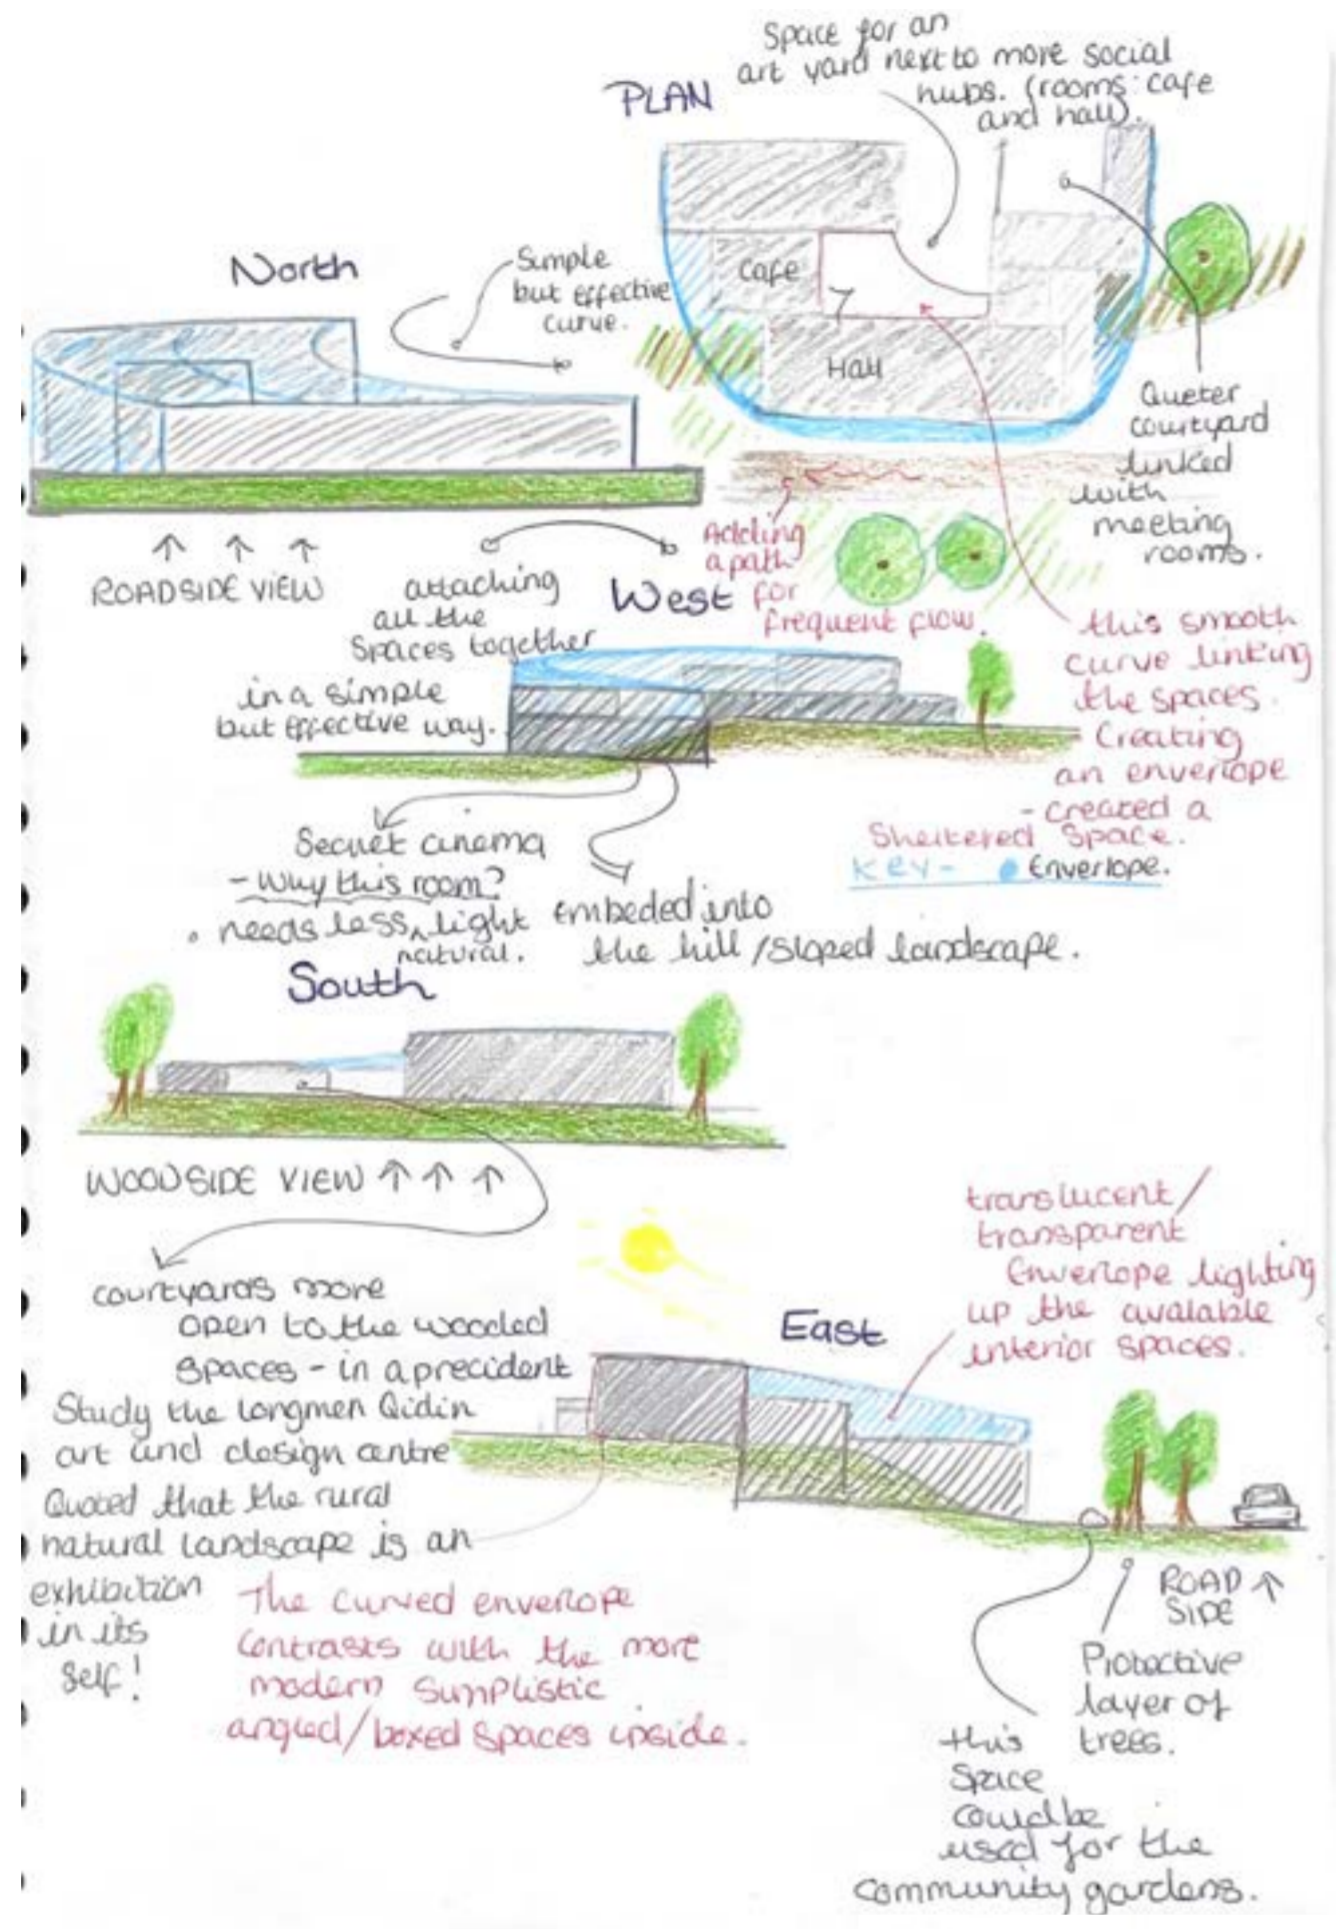 PLAN
Space for an
art yard next to more social
hubs. (rooms: cafe
and hall).
North
Simple
but effective
curve.
Cafe
Hall
Queter
courtyard
linked
with
meeting
rooms.
ROADSIDE VIEW
attaching
all the
spaces together
in a simple
but effective way.
West
Adding
a path
for
frequent flow.
this smooth
curve linking
the spaces.
Creating
an envelope
- created a
Sheltered Space.
Key - Envelope.
Secret cinema
- Why this room?
• needs less ^ light
natural.
Embeded into
the hill / sloped landscape.
South
WOODSIDE VIEW
courtyards more
open to the wooded
spaces - in a precident
Study the longmen Qidin
art and design centre
Quoted that the rural
natural landscape is an
exhibition
in its
self!
East
translucent /
transparent
Envelope lighting
up the avalable
interior spaces.
The curved envelope
contrasts with the more
modern simplistic
angled/boxed spaces inside.
ROAD
SIDE
Protective
layer of
trees.
this
space
could be
used for the
community gardens.